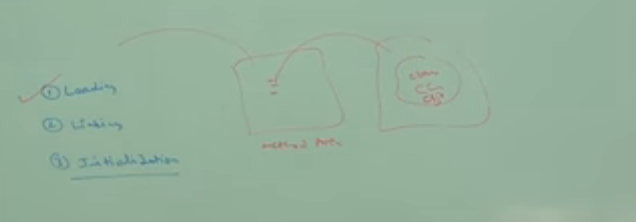 ① Loading
② Linking
③ Initialization
method area
class
obj